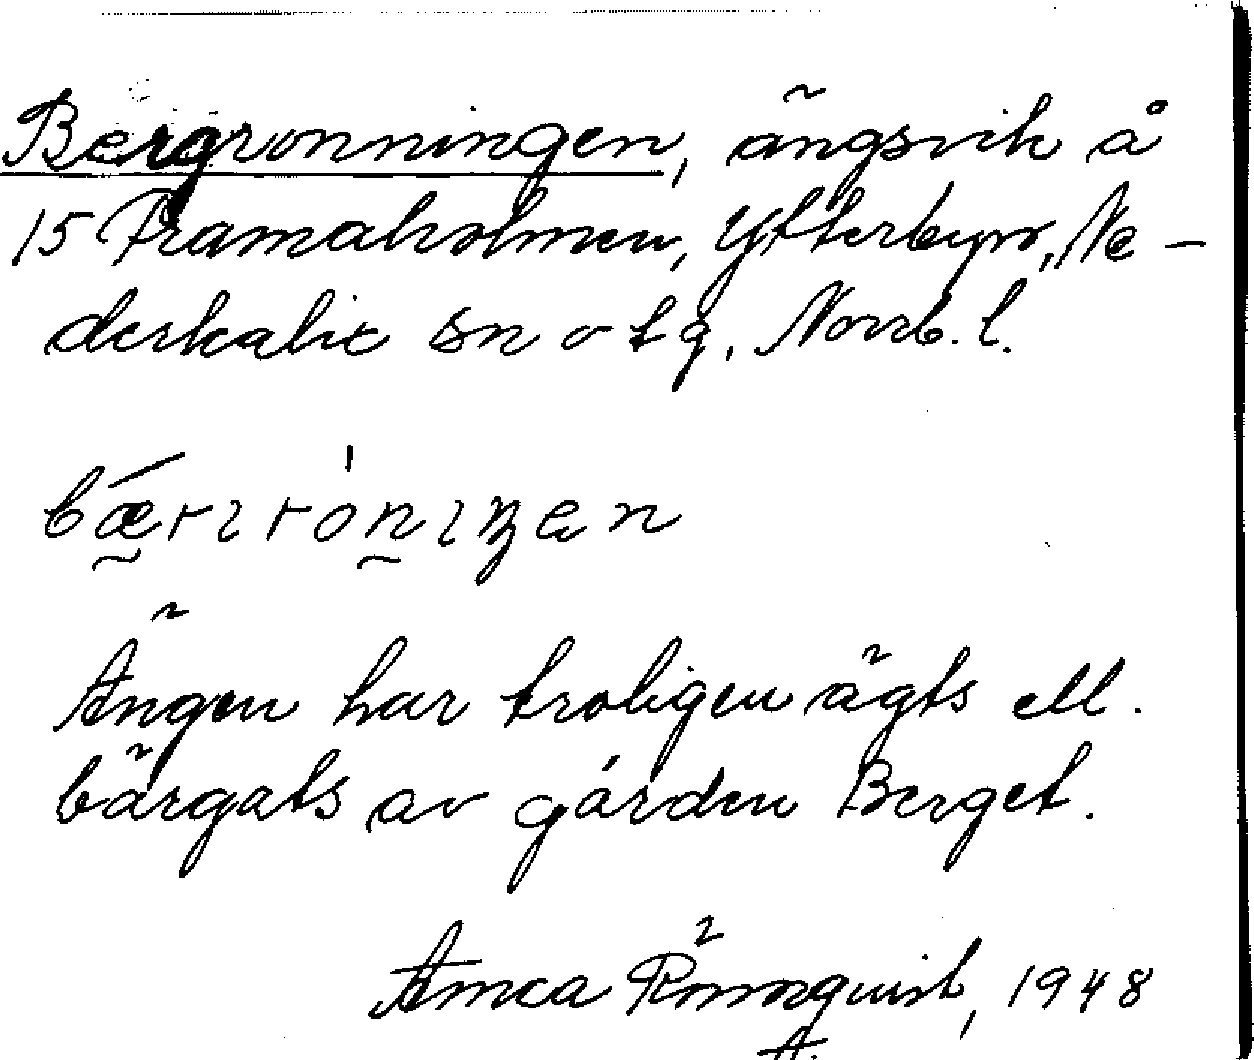 Bergronningen, ängsvik å
15 Framaholmen, Ytterbyn, Ne-
derkalix sn o tg, Norrb. l.
bæriróniŋen
Ängen har troligen ägts ell.
bärgats av gården Berget.
Rönnquist, 1948
A.